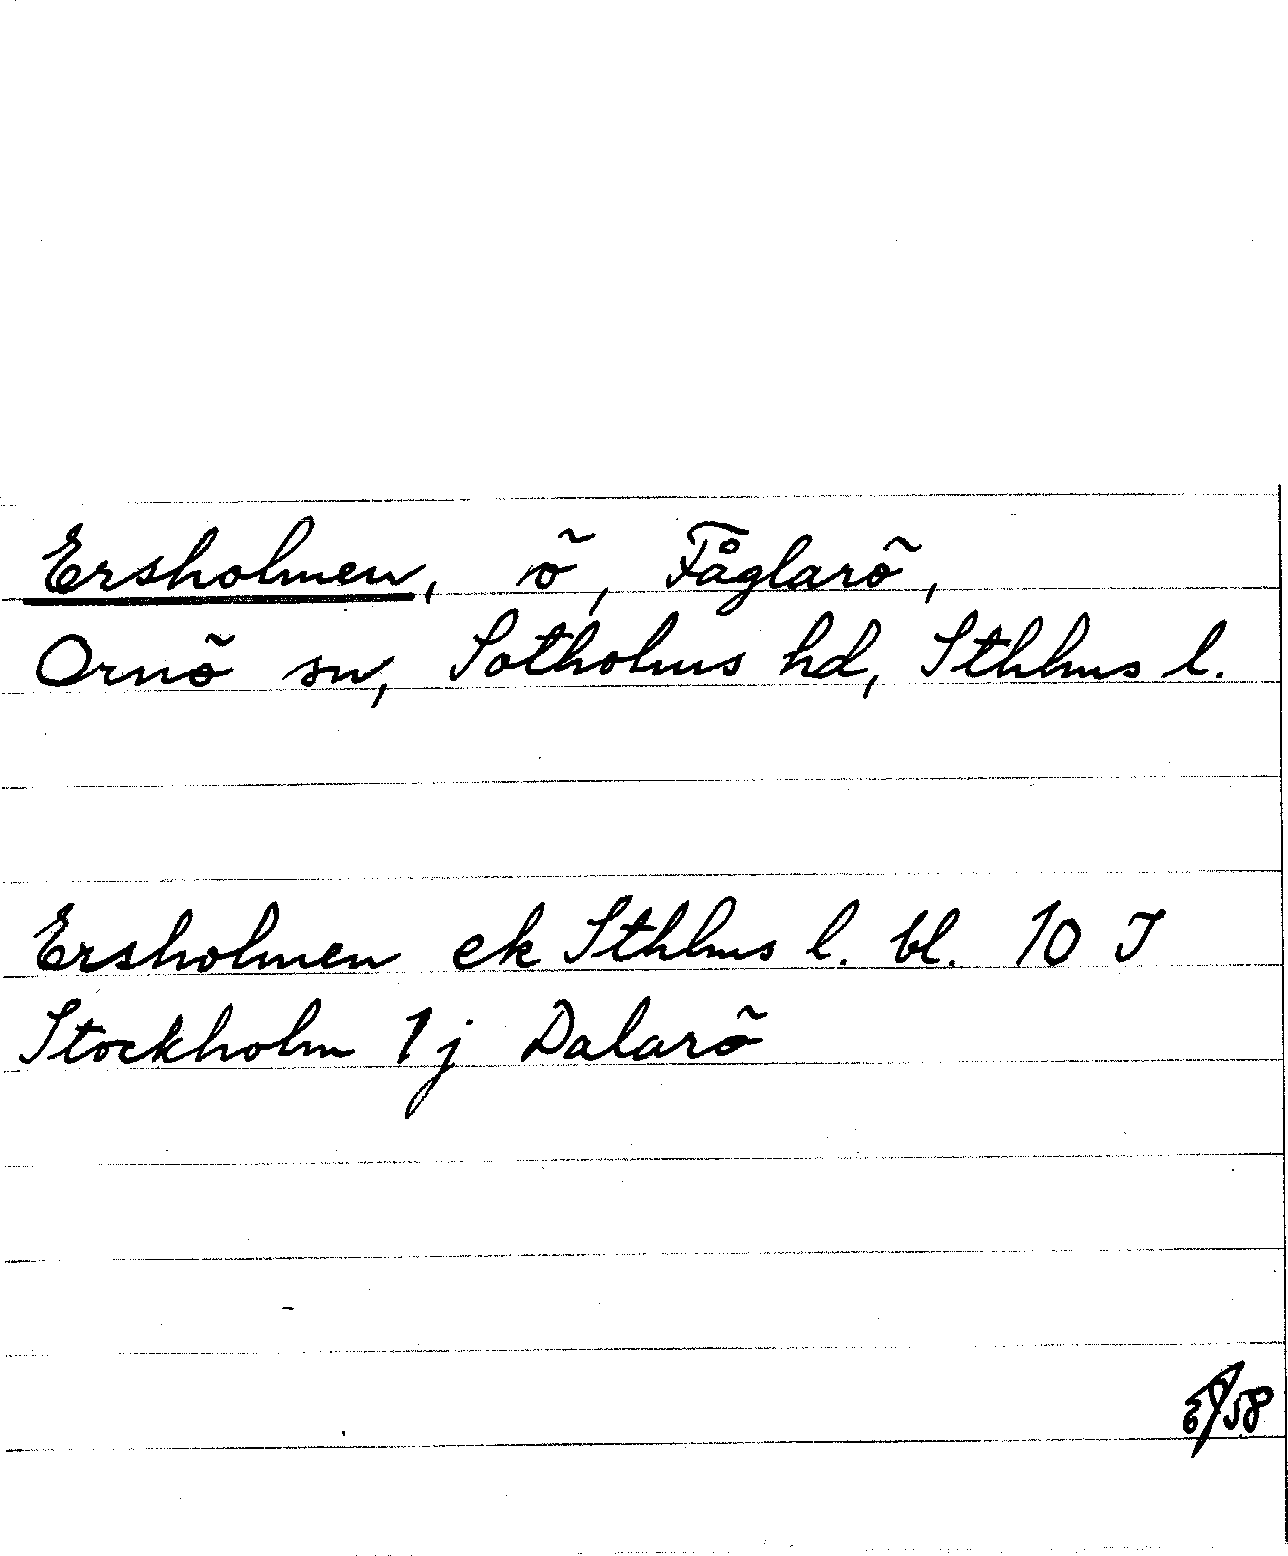 Ersholmen, ö, Fåglarö,
Ornö sn, Sotholms hd, Sthlms l.
Ersholmen ek Sthlms l. bl. 10 J
Stockholm 1j Dalarö
58